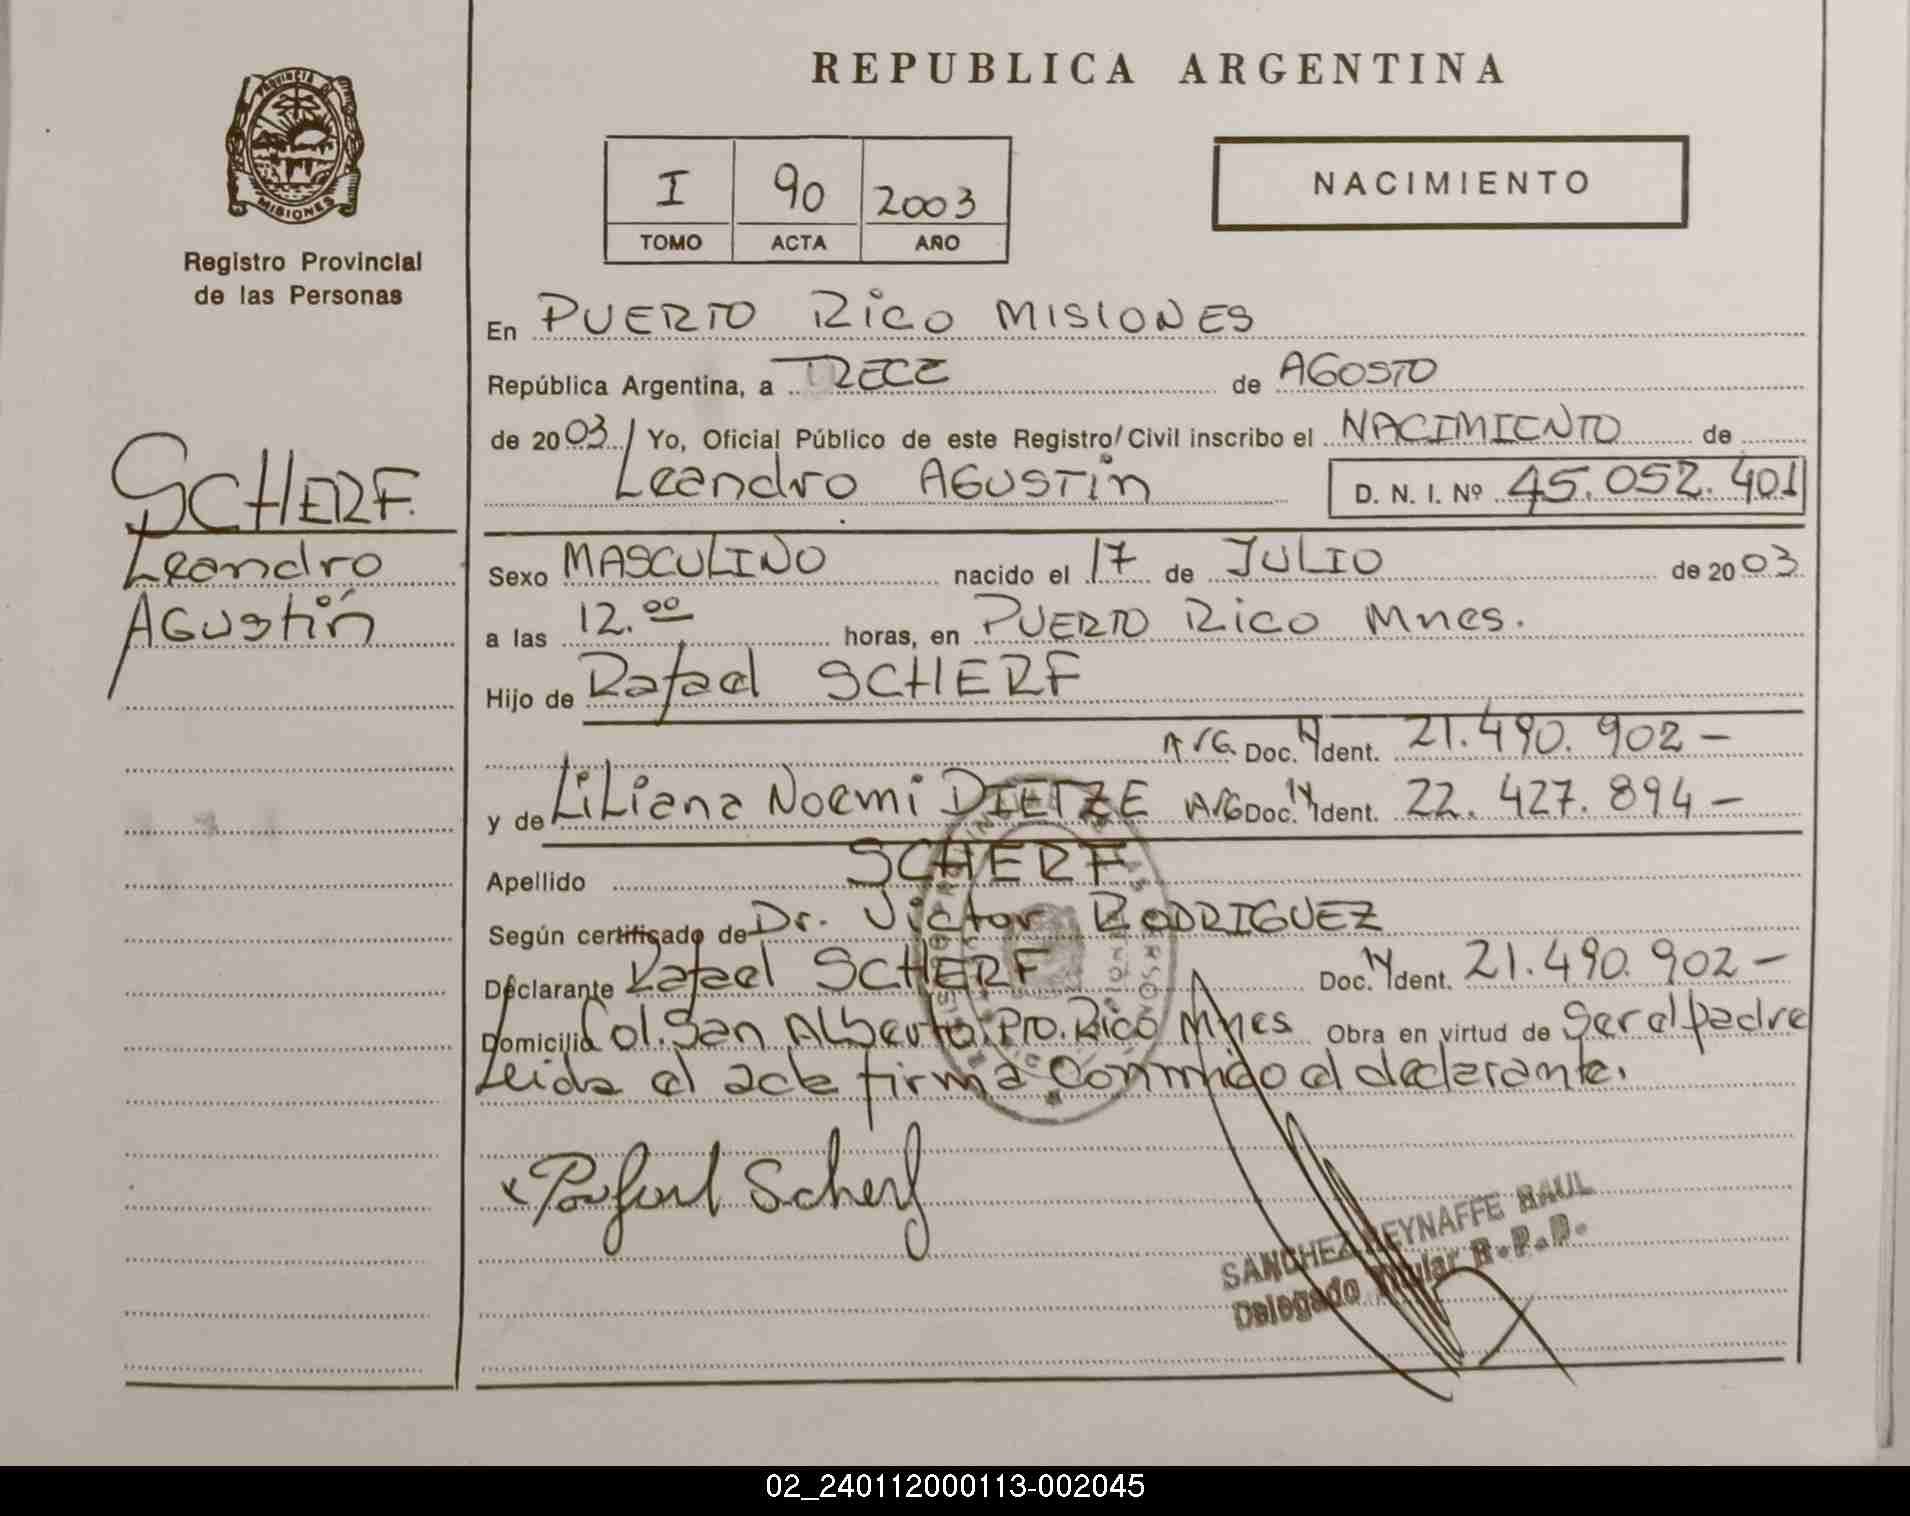 REPUBLICA ARGENTINA
PROVINCIA DE
MISIONES
Registro Provincial
de las Personas
I 90 2003
TOMO ACTA AÑO
NACIMIENTO
SCHERF
Leandro
Agustín
En PUERTO Rico MISIONES
República Argentina, a TRECE de AGOSTO
de 2003 Yo, Oficial Público de este Registro Civil inscribo el NACIMIENTO de
Leandro AGUSTín D. N. I. Nº 45.052.401
Sexo MASCULINO nacido el 17 de JULIO de 2003
a las 12.00 horas, en PUERTO Rico Mnes.
Hijo de Rafael SCHERF
ARG Doc. N Ident. 21.490.902-
y de LiLiana Noemi DIETZE ARG Doc. N Ident. 22.427.894-
Apellido SCHERF
Según certificado de Dr. Victor RODRIGUEZ
Declarante Rafael SCHERF Doc. N Ident. 21.490.902-
Domicilio Col. San Alberto Pto. Rico Mnes Obra en virtud de Ser el padre
Leida el acta firma Conmigo el declarante.
x Rafael Scherf
SANCHEZ REYNAFFE RAUL
Delegado Titular R.P.P.
02_240112000113-002045